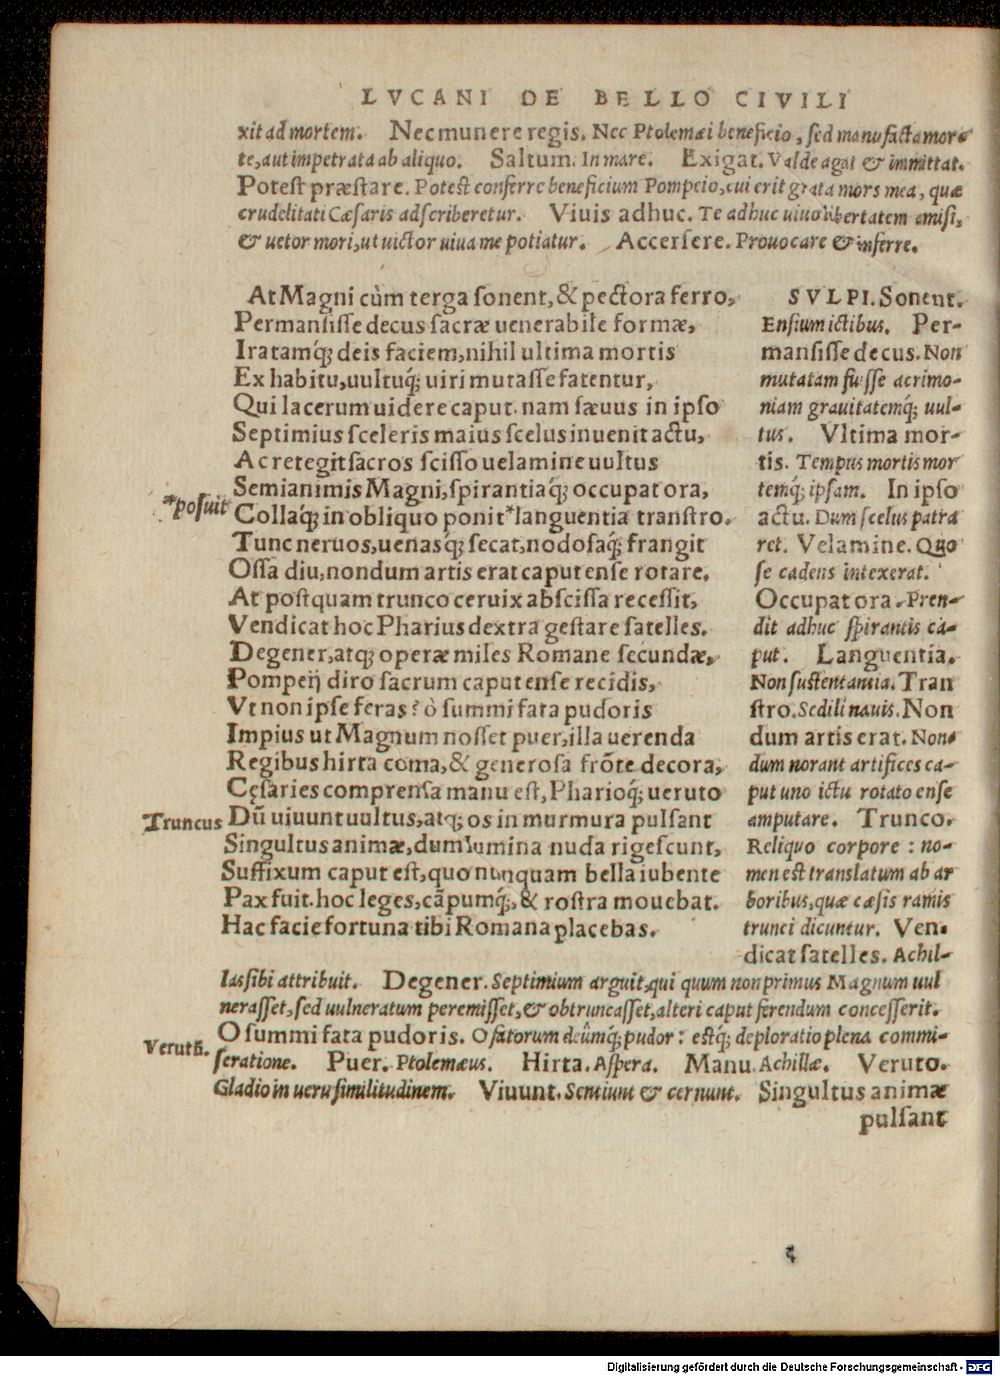 LVCANI DE BELLO CIVILI
xit ad mortem. Nec munere regis. Nec Ptolemæi beneficio, sed manu facta mor-
te, aut impetrata ab aliquo. Saltum. In mare. Exigat. Valde agat & immittat.
Potest præstare. Potest conferre beneficium Pompeio, cui erit grata mors mea, quæ
crudelitati Cæsaris adscriberetur. Viuis adhuc. Te adhuc uiuo libertatem amisi,
& uetor mori, ut uictor uiua me potiatur. Accersere. Prouocare & inferre.
At Magni cùm terga sonent, & pectora ferro,
Permansisse decus sacræ uenerabile formæ,
Iratamq́; deis faciem, nihil ultima mortis
Ex habitu, uultuq́; uiri mutasse fatentur,
Qui lacerum uidere caput. nam sæuus in ipso
Septimius sceleris maius scelus inuenit actu,
Ac retegit sacros scisso uelamine uultus
Semianimis Magni, spirantiaq́; occupat ora,
*posuit
Collaq́; in obliquo ponit *languentia transtro.
Tunc neruos, uenasq́; secat, nodosaq́; frangit
Ossa diu, nondum artis erat caput ense rotare.
At postquam trunco ceruix abscissa recessit,
Vendicat hoc Pharius dextra gestare satelles.
Degener, atq; operæ miles Romane secundæ,
Pompeij diro sacrum caput ense recidis,
Vt non ipse feras? ò summi fata pudoris
Impius ut Magnum nosset puer, illa uerenda
Regibus hirta coma, & generosa frōte decora,
Cęsaries comprensa manu est, Pharioq́; ueruto
Truncus
Dū uiuunt uultus, atq; os in murmura pulsant
Singultus animæ, dum lumina nuda rigescunt,
Suffixum caput est, quo nunquam bella iubente
Pax fuit. hoc leges, cāpumq́;, & rostra mouebat.
Hac facie fortuna tibi Romana placebas.
SVLPI. Sonent.
Ensium ictibus. Per-
mansisse decus. Non
mutatam fuisse acrimo-
niam grauitatemq́; uul-
tus. Vltima mor-
tis. Tempus mortis mor
temq́; ipsam. In ipso
actu. Dum scelus patra
ret. Velamine. Quo
se cadens intexerat.
Occupat ora. Pren-
dit adhuc spirantis ca-
put. Languentia.
Non sustentantia. Tran
stro. Sedili nauis. Non
dum artis erat. Non-
dum norant artifices ca-
put uno ictu rotato ense
amputare. Trunco.
Reliquo corpore : no-
men est translatum ab ar
boribus, quæ cæsis ramis
trunci dicuntur. Ven-
dicat satelles. Achil-
las sibi attribuit. Degener. Septimium arguit, qui quum non primus Magnum uul
nerasset, sed uulneratum peremisset, & obtruncasset, alteri caput ferendum concesserit.
O summi fata pudoris. O fatorum deûmq́; pudor: estq́; deploratio plena commi-
Verutū.
seratione. Puer. Ptolemæus. Hirta. Aspera. Manu. Achillæ. Veruto.
Gladio in ueru similitudinem. Viuunt. Sentiunt & cernunt. Singultus animæ
pulsant
Digitalisierung gefördert durch die Deutsche Forschungsgemeinschaft - DFG